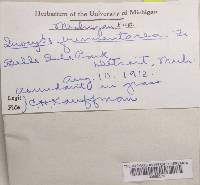 Herbarium of the University of Michigan
Michigan
Inocybe
Belle Isle Park
Detroit, Mich.
Aug. 10. 1912.
abundant in grass
Legit
Fide
C H Kauffman